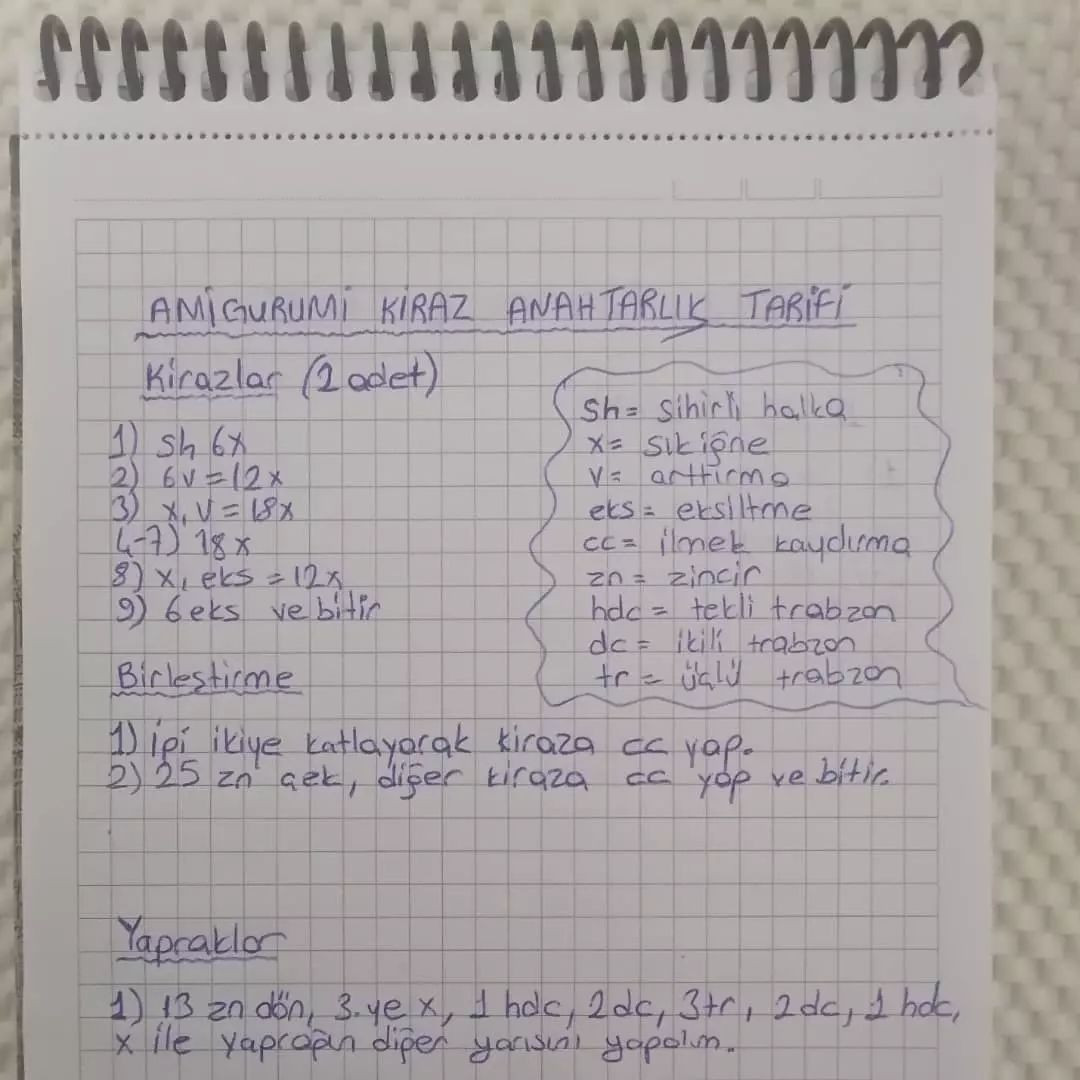 AMİGURUMİ KİRAZ ANAHTARLIK TARİFİ
Kirazlar (2 adet)
1) sh 6x
2) 6v=12x
3) x, v=18x
4-7) 18x
8) x, eks =12x
9) 6 eks ve bitir
sh= sihirli halka
x= sık iğne
v= arttırma
eks= eksiltme
cc= ilmek kaydırma
zn= zincir
hdc= tekli trabzon
dc= ikili trabzon
tr= üçlü trabzon
Birleştirme
1) ipi ikiye katlayarak kiraza cc yap.
2) 25 zn çek, diğer kiraza cc yap ve bitir.
Yapraklar
1) 13 zn dön, 3.ye x, 1 hdc, 2 dc, 3 tr, 2 dc, 1 hdc,
x ile yaprağın diğer yarısını yapalım.